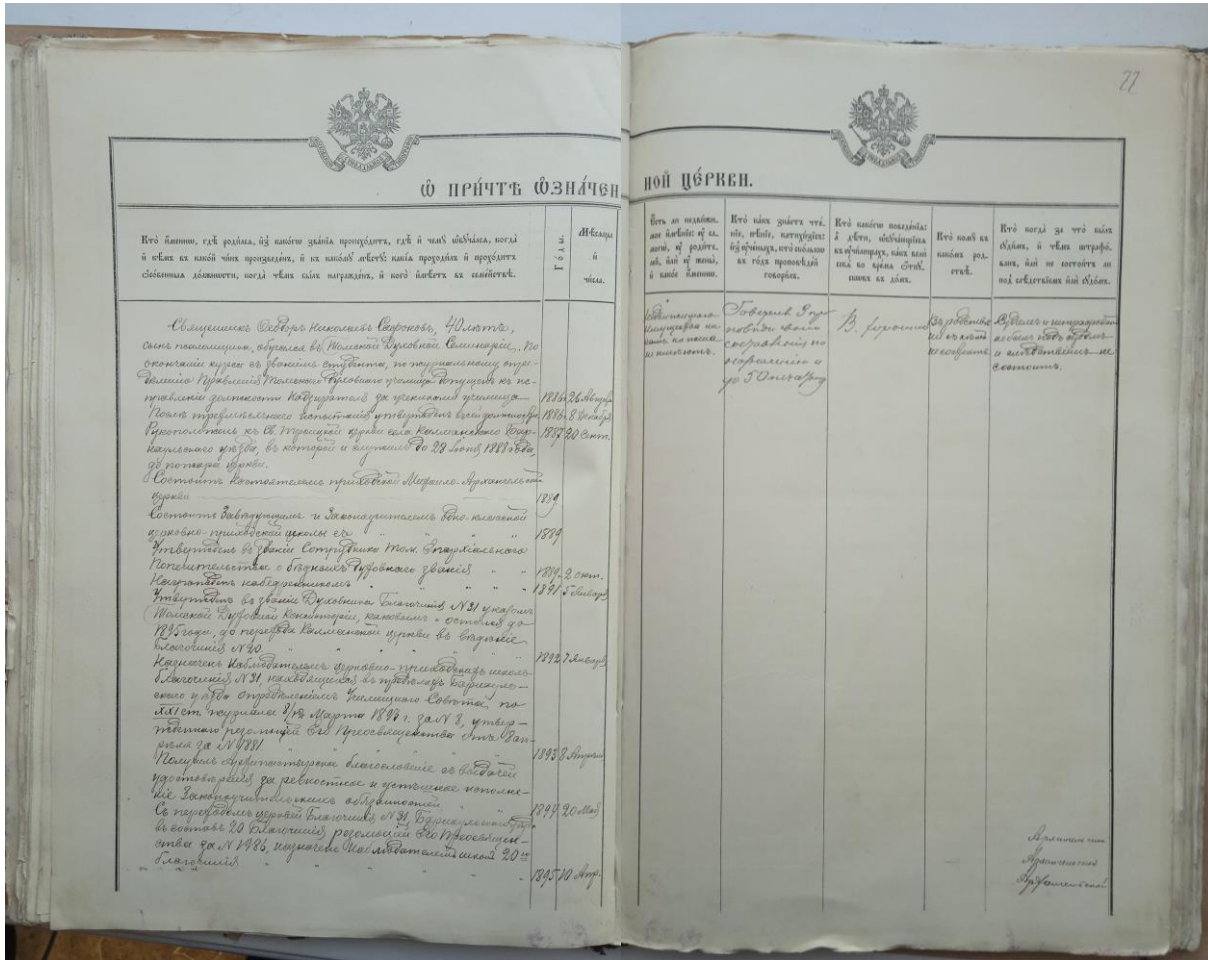 22
Ѡ ПРИ́ЧТѢ ѠЗНА́ЧЕН
НОЙ ЦЕ́РКВИ.
Кто̀ и҆́менно, гдѣ̀ роди́лсѧ, и҆з̾ како́гѡ зва́нїѧ происхо́дитъ, гдѣ̀ и҆ чему̀ ѡ҆буча́лсѧ, когда̀
и҆ кѣ́мъ въ како́й чи́нъ произведе́нъ, и҆ къ како́му мѣ́сту: какі̑ѧ проходи́лъ и҆ прохо́дитъ
ѻ҆со́бенныѧ до́лжности, когда̀ чѣ́мъ бы́лъ награжде́нъ, и҆ кого̀ и҆мѣ́етъ въ семе́йствѣ.
Го́ды.
Мѣ́сѧцы
и҆
чи́сла.
Е҆́сть ли недви́жи-
мое и҆мѣ́нїе: ᲂу҆ са-
могѡ̀, ᲂу҆ роди́те-
лей, и҆лѝ ᲂу҆ жены̀,
и҆ како́е и҆́менно.
Кто̀ ка́къ зна́етъ чте́-
нїе, пѣ́нїе, катихи́зїсъ:
и҆з̾ ᲂу҆че́ныхъ, кто̀ ско́лькѡ
въ го́дъ про́повѣдей
говори́лъ.
Кто̀ како́гѡ поведе́нїѧ:
а҆ дѣ́ти, ѡ҆буча́ющїесѧ
въ ᲂу҆чи́лищахъ, ка́къ велѝ
себѐ во вре́мѧ ѿпу́-
сковъ въ до́мъ.
Кто̀ кому̀ въ
како́мъ род-
ствѣ̀.
Кто̀ когда̀ за что̀ бы́лъ
суди́мъ, и҆ чѣ́мъ штрафо́-
ванъ, и҆лѝ не состои́тъ ли
под̾ слѣ́дствїемъ и҆лѝ судо́мъ.
Священникъ Ѳеодоръ Николаевъ Сафоновъ, 40 лѣтъ,
сынъ псаломщика, обучался въ Томской Духовной Семинаріи. По
окончаніи курса съ званіемъ студента, по журнальному опре-
дѣленію Правленія Томскаго Духовнаго училища допущенъ къ ис-
правленію должности Надзирателя за учениками училища 1886 26 Августа
Послѣ испытанія утвержденъ въ сей должности 1886 8 Декабря
Рукоположенъ къ Св. Троицкой церкви села Калманскаго Бар- 1887 20 Сент.
наульскаго уѣзда, въ которой и служилъ до 28 Іюня 1888 года,
до пожара церкви.
Состоитъ Настоятелемъ приходской Михаило-Архангельской
церкви 1889
Состоитъ Завѣдующимъ и Законоучителемъ одно-классной
церковно-приходской школы съ " " " " 1889
Утвержденъ въ званіи Сотрудника Том. Епархіальнаго
Попечительства о бѣдныхъ духовнаго званія " " 1889 2 окт.
Награжденъ набедренникомъ " " " " 1891 5 Января
Утвержденъ въ званіи Духовника Благочинія № 21 указомъ
Томской Духовной Консисторіи, каковымъ и остался до
1895 года, до перехода Калманской церкви въ вѣдѣніе
Благочинія № 20. " " " " 1892 7 Января
Назначенъ Наблюдателемъ церковно-приходскихъ школъ
благочинія № 21, находящихся въ предѣлахъ Барнауль-
скаго уѣзда опредѣленіемъ Училищнаго Совѣта, по
XXI ст. журнала 8/18 Марта 1893 г. за № 8, утвер-
жденнаго резолюціей Его Преосвященства отъ 8 ап-
рѣля за № 1881 1893 8 Апрѣля
Получилъ Архипастырское благословеніе съ выдачей
удостовѣренія за ревностное и успѣшное исполне-
ніе Законоучительскихъ обязанностей " " 1897 20 Мая
Съ переходомъ церквей Благочинія № 21, Барнаульскаго уѣзда
въ составъ 20 Благочинія резолюціей Его Преосвящен-
ства за № 1986, назначенъ Наблюдателемъ школъ 20го
благочинія " " " 1895 10 Апр.
Говорилъ 3 про
повѣди своего
сочиненія по
и
до 50 печатныхъ
В. хорошаго
Въ родствѣ
ни съ кѣмъ
не состоитъ
Судимъ и штрафованъ
не былъ подъ судомъ
и слѣдствіемъ не
состоитъ.